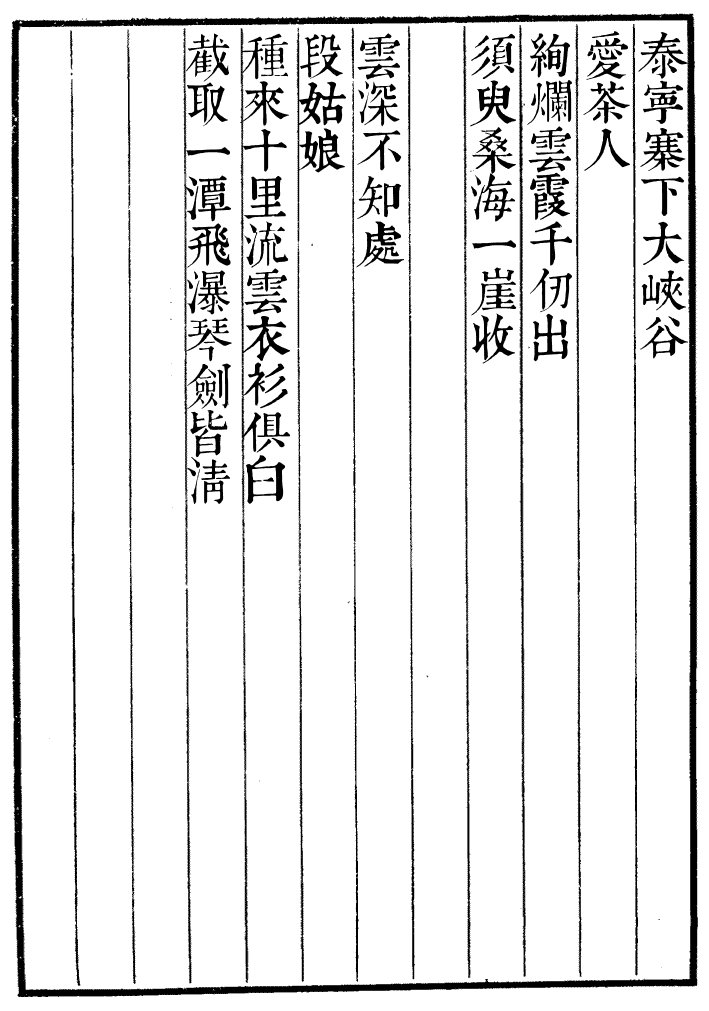 泰寧寨下大峽谷
愛茶人
絢爛雲霞千仞出
須臾桑海一崖收
雲深不知處
段姑娘
種來十里流雲衣衫俱白
截取一潭飛瀑琴劍皆淸